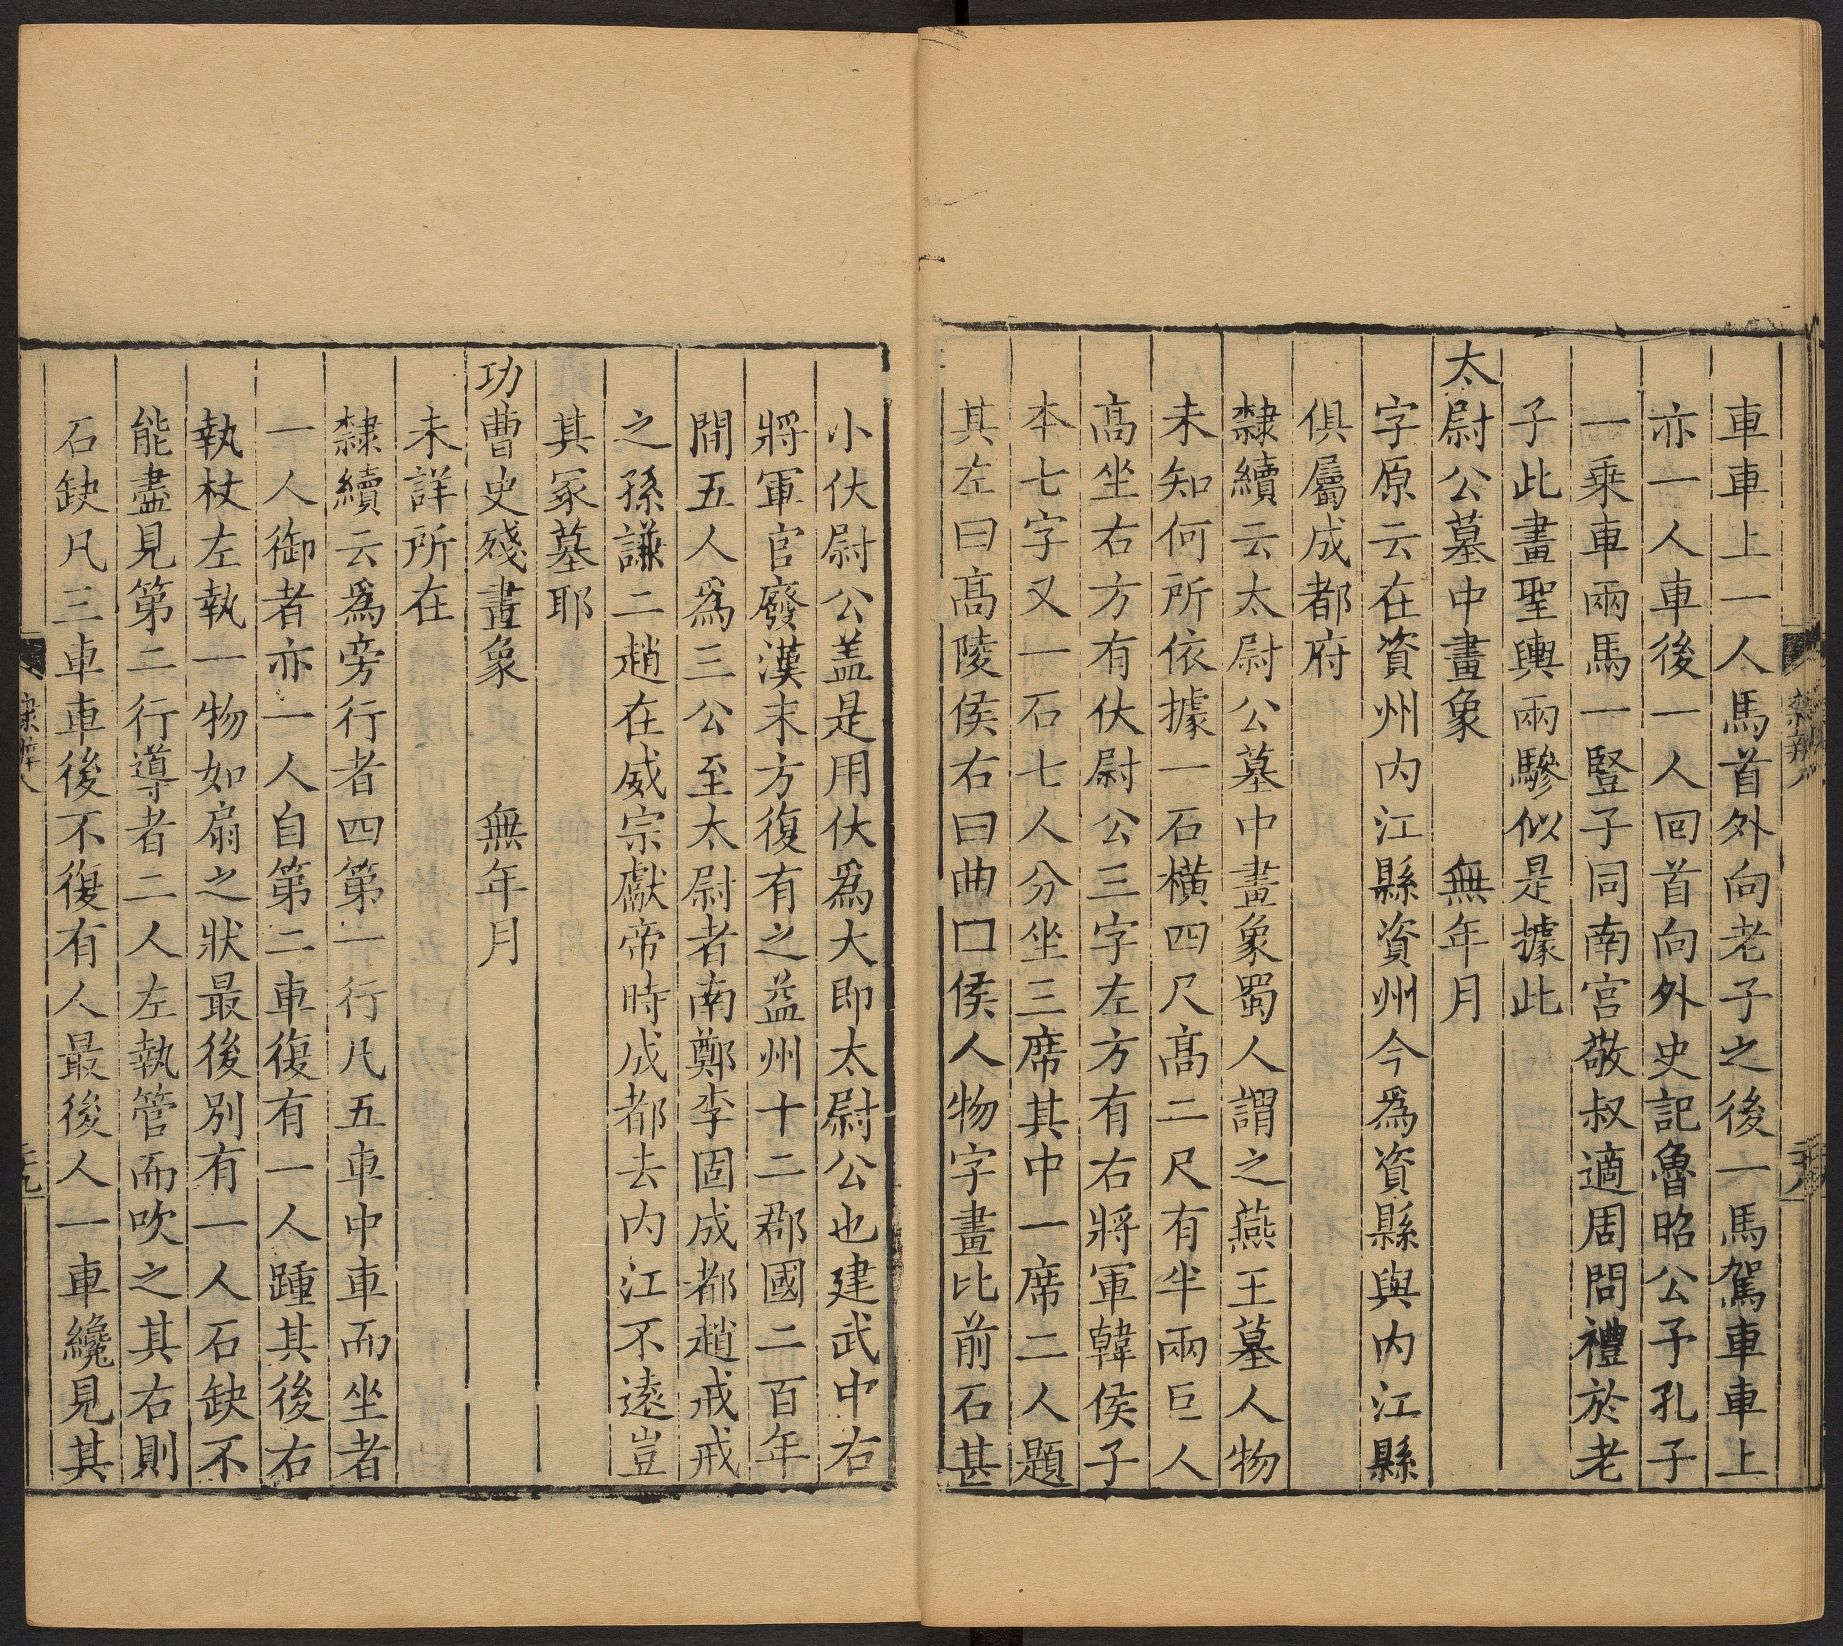 車車上一人馬首外向老子之後一馬駕車車上
亦一人車後一人回首向外史記魯昭公予孔子
一乗車兩馬一豎子同南宫敬叔適周問禮於老
子此畫聖輿兩驂似是據此
太尉公墓中畫象 無年月
字原云在資州内江縣資州今爲資縣與内江縣
俱屬成都府
隸續云太尉公墓中畫象蜀人謂之燕王墓人物
未知何所依據一石橫四尺髙二尺有半兩巨人
髙坐右方有伏尉公三字左方有右將軍韓侯子
本七字又一石七人分坐三席其中一席二人題
其左曰髙陵侯右曰曲口侯人物字畫比前石甚
小伏尉公盖是用伏爲大即太尉公也建武中右
將軍官廢漢末方復有之益州十二郡國二百年
間五人爲三公至太尉者南鄭李固成都趙戒戒
之孫謙二趙在威宗獻帝時成都去内江不遠豈
其冡墓耶
功曹史殘畫象 無年月
未詳所在
隸續云爲旁行者四第一行凡五車中車而坐者
一人御者亦一人自第二車復有一人踵其後右
執杖左執一物如扇之狀最後別有一人石缺不
能盡見第二行導者二人左執管而吹之其右則
石缺凡三車車後不復有人最後人一車纔見其
隸辨八